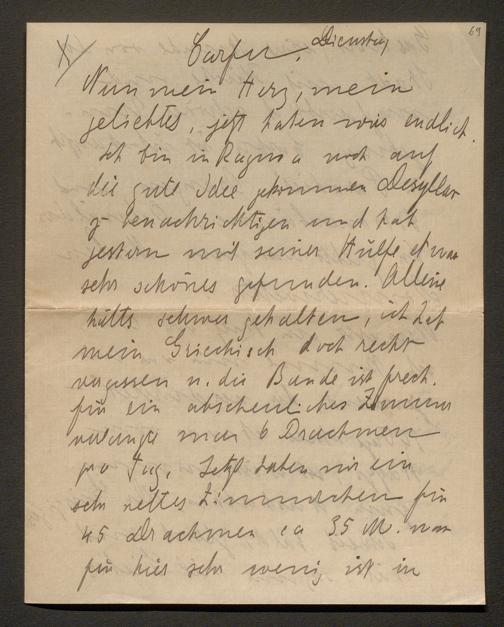 69
Corfu, Dienstag
Nun mein Herz, mein
geliebtes, jetzt haben wirs endlich.
Ich bin in Ragusa noch auf
die gute Idee gekommen Desyllas
z benachrichtigen und hab
gestern mit seiner Hülfe etwas
sehr schönes gefunden. Alleine
hätts schwer gehalten, ich hab
mein Griechisch doch recht
vergessen u. die Bande ist frech.
für ein abscheuliches Zimmer
verlangte man 6 Drachmen
pro Tag. Jetzt haben wir ein
sehr nettes Zimmerchen für
45 Drachmen ca 35 M. was
für hier sehr wenig ist in